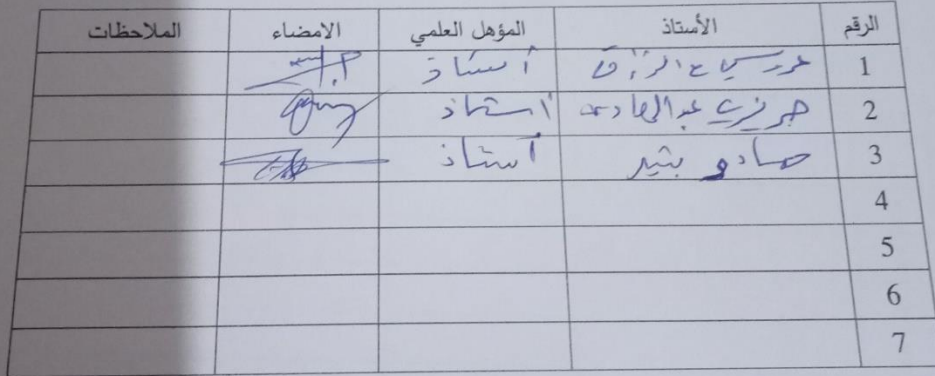 الرقم الأستاذ المؤهل العلمي الامضاء الملاحظات
1 عروسي ع الرزاق أستاذ
2 عبد الهادي أستاذ
3 حمادو بشير أستاذ
4
5
6
7